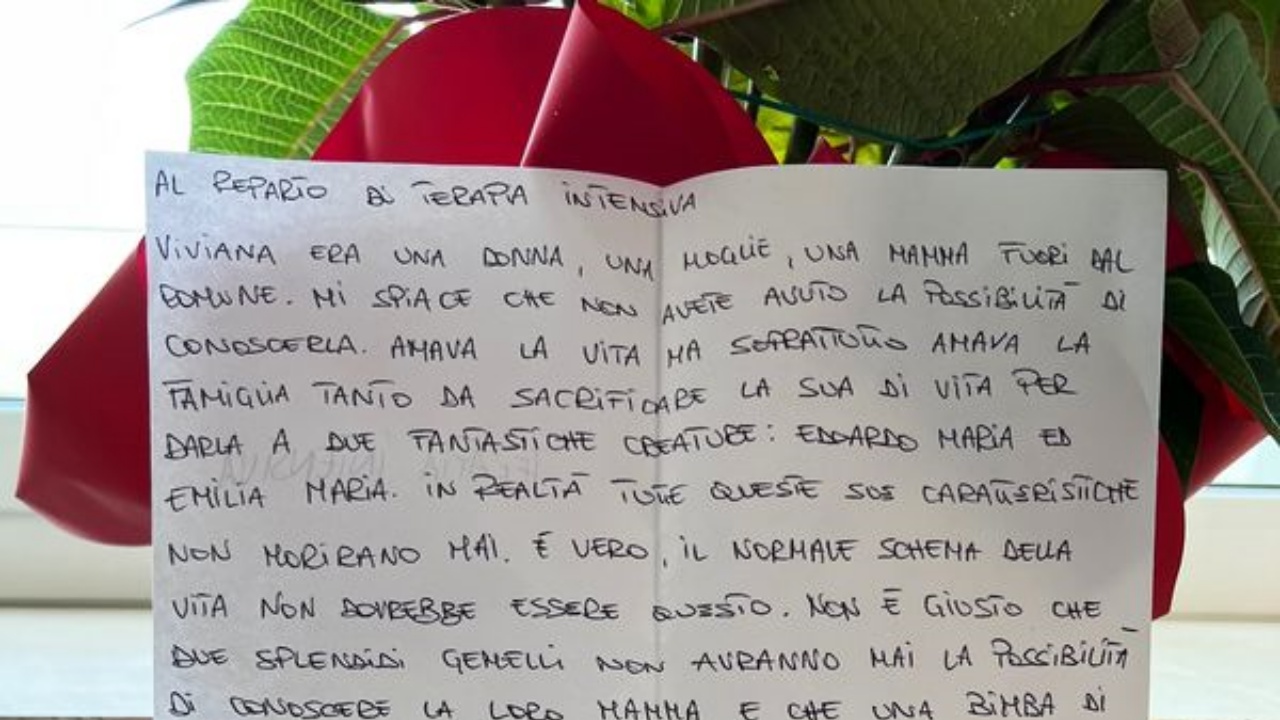 AL REPARTO DI TERAPIA INTENSIVA
VIVIANA ERA UNA DONNA, UNA MOGLIE, UNA MAMMA FUORI DAL
COMUNE. MI SPIACE CHE NON AVETE AVUTO LA POSSIBILITÀ DI
CONOSCERLA. AMAVA LA VITA MA SOPRATTUTTO AMAVA LA
FAMIGLIA TANTO DA SACRIFICARE LA SUA DI VITA PER
DARLA A DUE FANTASTICHE CREATURE: EDOARDO MARIA ED
EMILIA MARIA. IN REALTÀ TUTTE QUESTE SUE CARATTERISTICHE
NON MORIRANO MAI. È VERO, IL NORMALE SCHEMA DELLA
VITA NON DOVREBBE ESSERE QUESTO. NON È GIUSTO CHE
DUE SPLENDIDI GEMELLI NON AVRANNO MAI LA POSSIBILITÀ
DI CONOSCERE LA LORO MAMMA E CHE UNA BIMBA DI